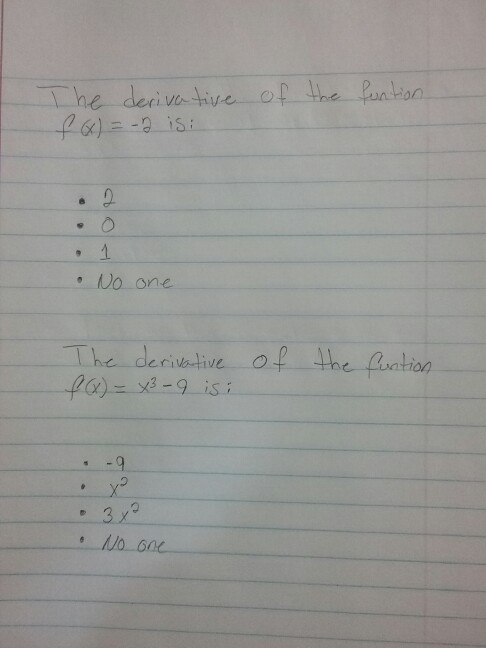 The derivative of the funtion
f(x) = -2 is:
• 2
• 0
• 1
• No one
The derivative of the funtion
f(x) = x³ - 9 is:
• -9
• x²
• 3x²
• No one